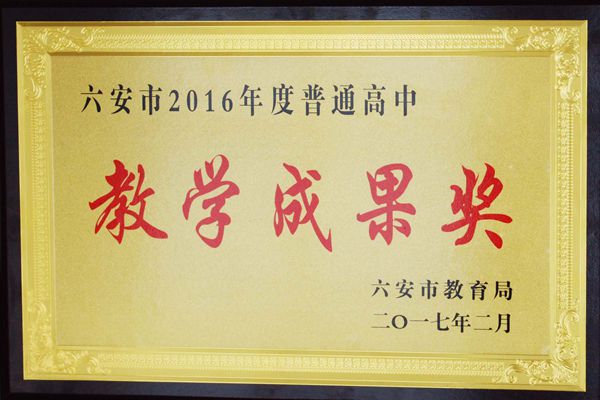 六安市2016年度普通高中
教学成果奖
六安市教育局
二〇一七年二月